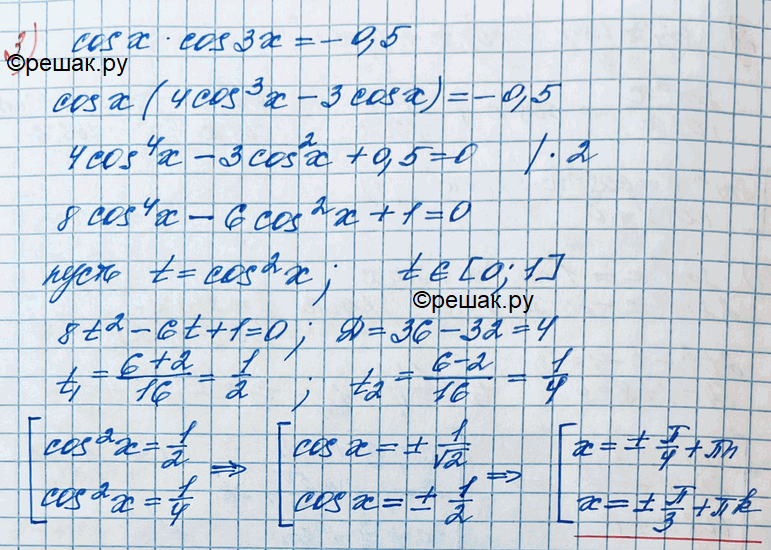 3) cos x · cos 3x = -0,5
©решак.ру
cos x (4cos³x - 3cos x) = -0,5
4cos⁴x - 3cos²x + 0,5 = 0 /· 2
8cos⁴x - 6cos²x + 1 = 0
пусть t = cos²x; t ∈ [0; 1]
©решак.ру
8t² - 6t + 1 = 0; D = 36 - 32 = 4
t₁ = (6+2)/16 = 1/2 ; t₂ = (6-2)/16 = 1/4
[ cos²x = 1/2 ⇒ [ cos x = ± 1/√2 ⇒ [ x = ± π/4 + πn
cos²x = 1/4 cos x = ± 1/2 x = ± π/3 + πk